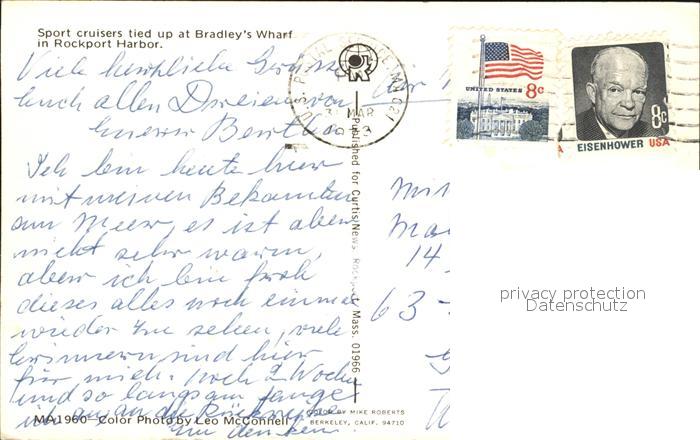 Sport cruisers tied up at Bradley's Wharf
in Rockport Harbor.
Viele herzliche Grüsse
Euch allen Dreien von
Eurer Bertha
Ich bin heute hier
mit meinen Bekannten
am Meer, es ist aber
nicht sehr warm,
aber ich bin froh
dieses alles noch einmal
wieder zu sehen, viele
Erinnerungen sind hier
für mich. Noch 2 Wochen
und so langsam fange
ich an an die Rückreise
zu denken.
MA1960—Color Photo by Leo McConnell
U.S. POSTAL SERVICE, MA 021
31 MAR
1973
Published for Curtis News, Rockport, Mass. 01966
COLOR BY MIKE ROBERTS
BERKELEY, CALIF. 94710
UNITED STATES 8c
8c
EISENHOWER USA
14
63-
privacy protection
Datenschutz